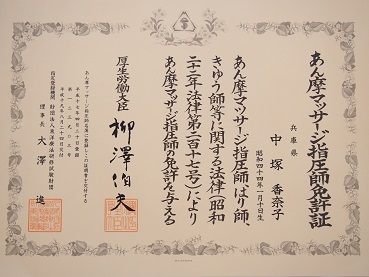 あん摩マッサージ指圧師免許証
兵庫県
中塚 香奈子
昭和四十四年一月十日生
あん摩マッサージ指圧師、はり師、
きゅう師等に関する法律(昭和
二十二年法律第二百十七号)により
あん摩マッサージ指圧師の免許を与える
厚生労働大臣 柳澤伯夫
指定登録機関 財団法人東洋療法研修試験財団
理事長 大澤 進